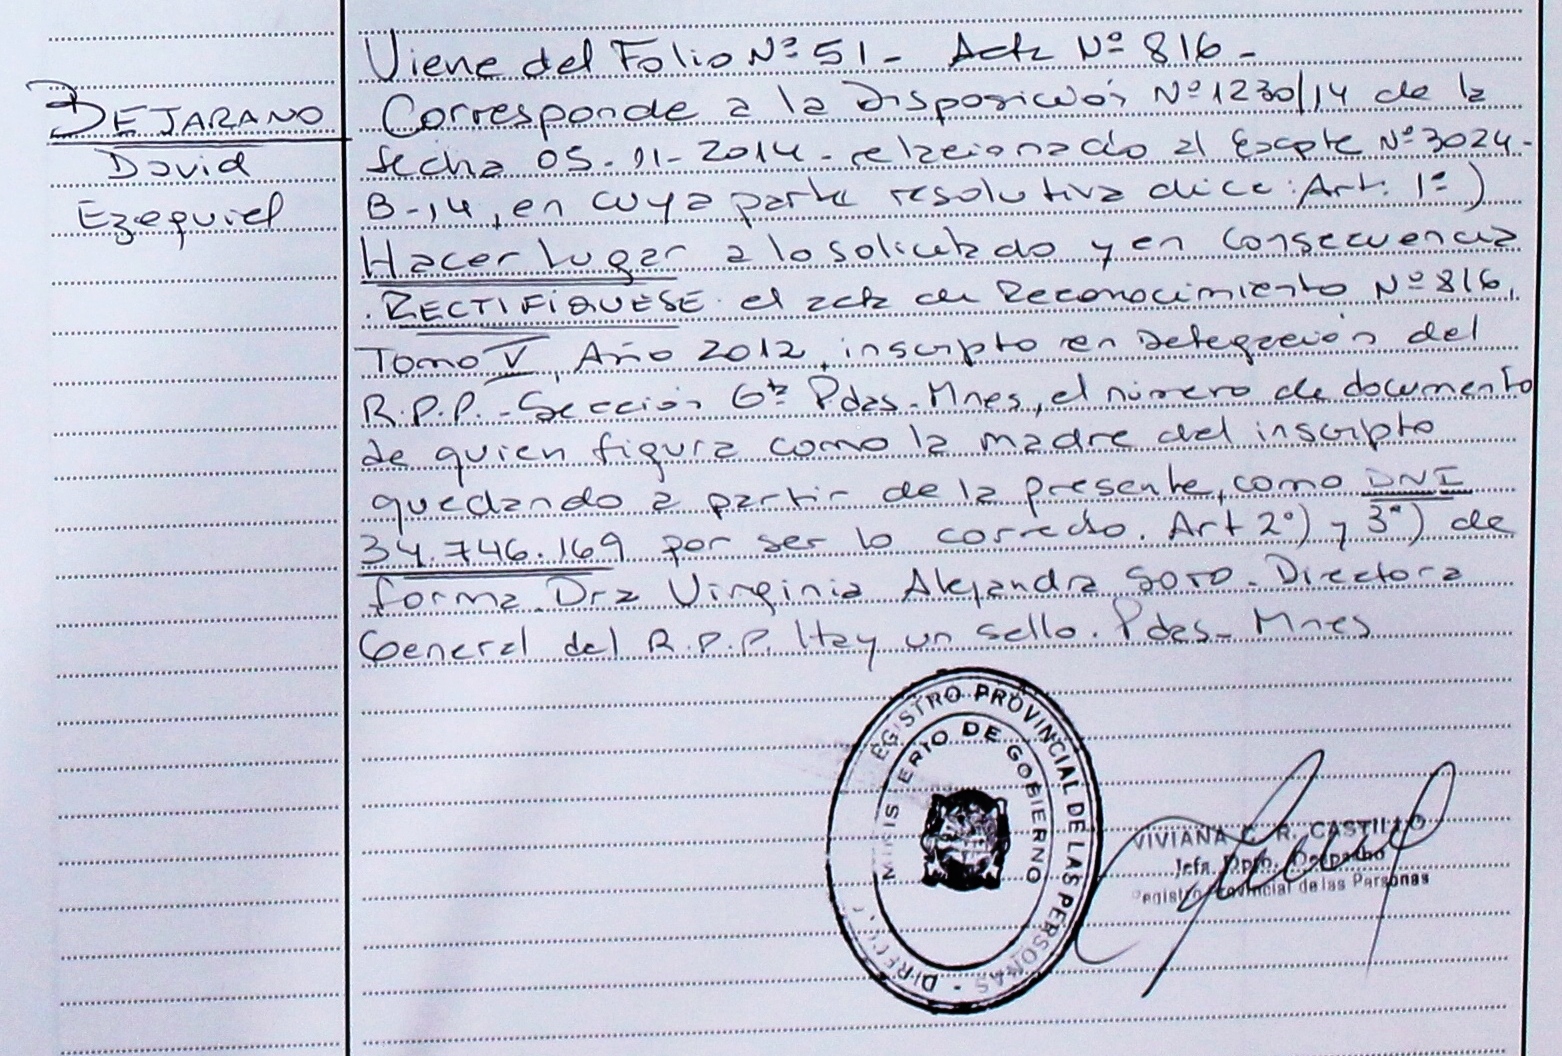 BEJARANO
David
Ezequiel
Viene del Folio Nº 51 - Acta Nº 816 -
Corresponde a la Disposición Nº 1230/14 de la
fecha 05-11-2014 - relacionado al Expte Nº 3024-
B-14, en cuya parte resolutiva dice: Art: 1º)
Hacer Lugar a lo solicitado y en consecuencia
RECTIFIQUESE el acta de Reconocimiento Nº 816,
Tomo V, Año 2012, inscripto en Delegación del
R.P.P. - Sección 6ta Pdas - Mnes, el número de documento
de quien figura como la madre del inscripto
quedando a partir de la presente, como DNI
34.746.169 por ser lo correcto. Art 2º) y 3º) de
forma. Dra Virginia Alejandra Soto - Directora
General del R.P.P. Hay un sello. Pdas - Mnes
REGISTRO PROVINCIAL DE LAS PERSONAS -
MINISTERIO DE GOBIERNO
VIVIANA C. R. CASTILLO
Jefa Dpto. Despacho
Registro Provincial de las Personas